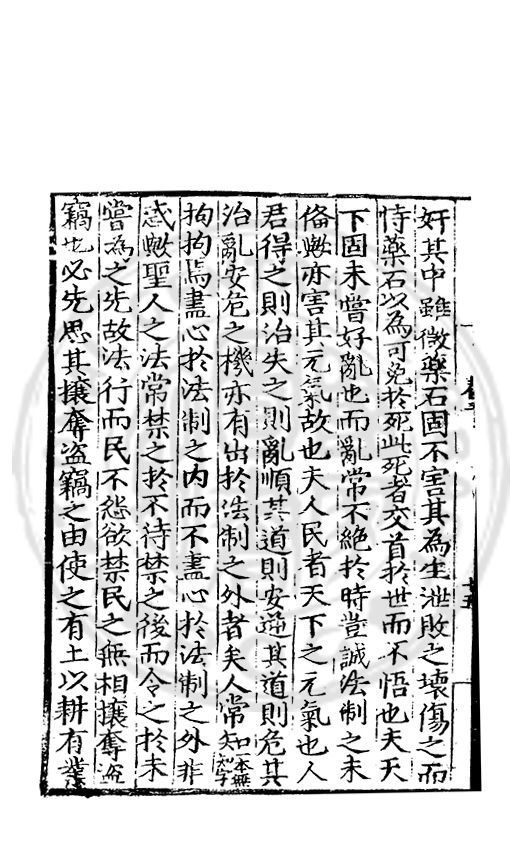 奸其中雖微藥石固不害其為生泄敗之壞傷之而
恃藥石以為可免於死此死者交首於世而不悟也夫天
下固未嘗好亂也而亂常不絕於時豈誠法制之未
俻歟亦害其元氣故也夫人民者天下之元氣也人
君得之則治失之則亂順其道則安逆其道則危其
治亂安危之機亦有出於法制之外者矣人常知本無知字
拘拘焉盡心於法制之內而不盡心於法制之外非
惑歟聖人之法常禁之於不待禁之後而令之於未
嘗為之先故法行而民不怨欲禁民之無相攘奪盜
竊也必先思其攘奪盜竊之由使之有土以耕有業